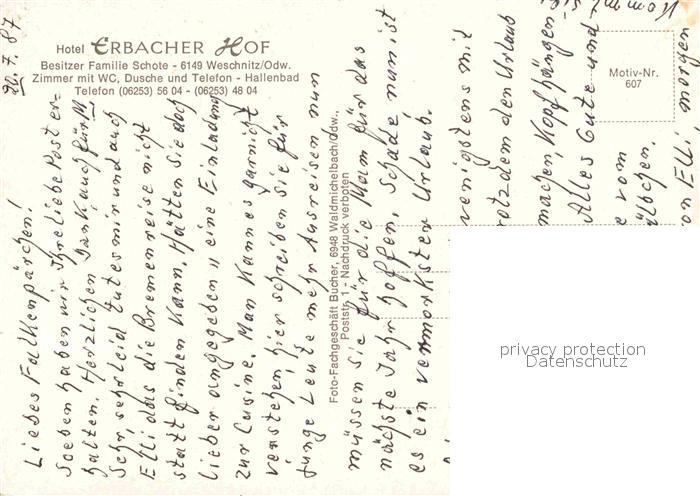 Hotel ERBACHER HOF
Besitzer Familie Schote - 6149 Weschnitz/Odw.
Zimmer mit WC, Dusche und Telefon - Hallenbad
Telefon (06253) 56 04 - (06253) 48 04
20.7.87
Liebes Falkenpärchen!
Soeben haben wir Ihre liebe Post er-
halten. Herzlichen Dank auch für
Sehr sehr leid tut es mir und auch
Elli das die Bremenreise nicht
statt finden kann. Hätten Sie doch
lieber angegeben " eine Einladung
zur Cusine. Man kann es gar nicht
verstehen, hier schreiben sie für
junge Leute mehr Ausreisen nun
müssen sie für die Mam für das
nächste Jahr hoffen. Schade nun ist
es ein vermorkster Urlaub.
wenigstens mit
rotzdem den Urlaub
machen, Kopf hängen
Alles Gute und
e vom
älbchen.
von Elli morgen
kommt sie
Foto-Fachgeschäft Bucher, 6948 Waldmichelbach/Odw.,
Poststr. 1 - Nachdruck verboten
Motiv-Nr.
607
privacy protection
Datenschutz